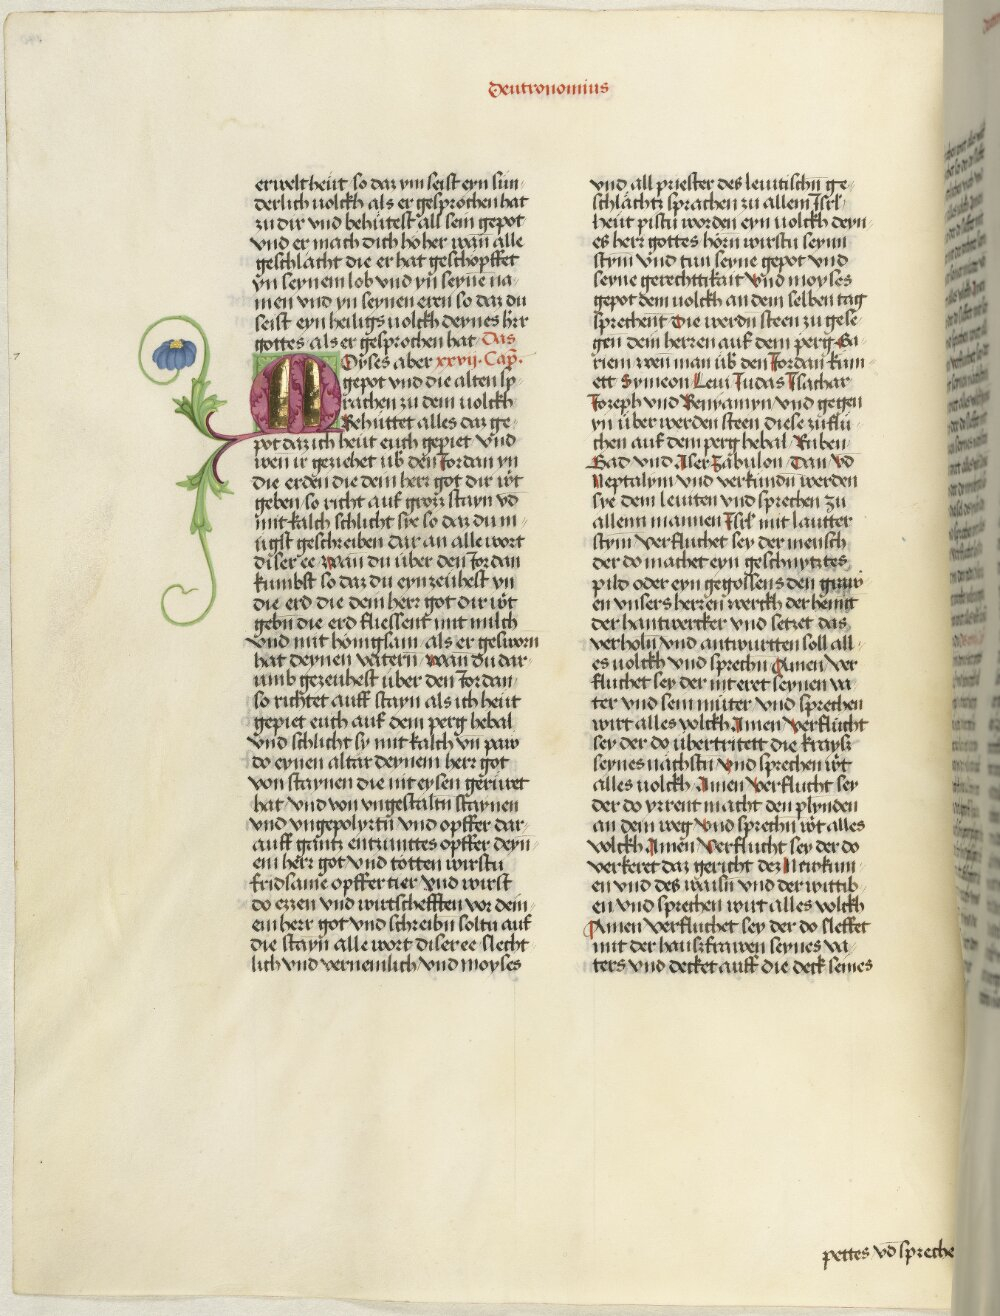 Deutronomius
erwelt heut so daz ym seist eyn sun-
derlich uolckh als er gesprochen hat
zu dir vnd behutest all sein gepot
vnd er mach dich hoher wan̄ alle
geschlacht die er hat geschopffet
yn seynem lob vnd yn̄ seyne na-
men vnd yn seynen eren so daz du
seist eyn heiligs uolckh deynes hrr
gottes als er gesprochen hat Das
Moyses aber xxvij. Cap̄.
gepot vnd die alten sp
rachen zu dem uolckh
Behuttet alles daz ge-
pot daz ich heut euch gepiet vnd
wen ir geziehet ub̄ den Jordan yn
die erden die dem herr got dir wt̄
geben so richt auf groz̄z stayn vd̄
mit kalch schlicht sye so daz du m-
ugst geschreiben dar an alle wort
diser ee wan̄ du uber den Jordan
kumbst so daz du eynzeuhest yn
die erd die dem herr got dir wt̄
gebn̄ die erd fliessent mit milch
vnd mit honigsam als er geswoꝛn
hat deynen vatern wan̄ du dar-
umb gezeuhest uber den Jordan
so richtet auff stayn als ich heut
gepiet euch auf dem perg hebal
vnd schlicht sy mit kalch vn̄ paw
do eynen altar deynem herr got
von staynen die nit eysen geruret
hat vnd von vngestaltn̄ staynen
vnd vngepolyrtn̄ vnd opffer dar-
auff gantz entzuntes opffer deyn-
em herr got vnd totten wirstu
fridsame opffertier vnd wirst
do ezzen vnd wirtschefften vor dein-
em herr got vnd schreibn̄ soltu auf
die stayn alle wort diser ee slecht-
lich vnd vernemlich vnd moyses
vnd all priester des leuitischn̄ ge-
schlachtz sprachen zu allem Isrl̄
heut pistu worden eyn uolckh deyn-
es herr gottes horn wirstu seynn
stym vnd tun seyne gepot vnd
seyne gerechttikait vnd moyses
gepot dem uolckh an dem selben tag
sprechent Die werdn̄ steen zu gese-
gen dem herren auf dem perg Ga-
riem wen man ub̄ den Jordan kum-
ett Symeon Leui Judas Isachar
Joseph vnd Benyamyn vnd gegen
yn uber werden steen diese zu flu-
chen auf dem perg hebal Ruben
Gad vnd Aser Zabulon Dan vd̄
Neptalym vnd verkundn̄ werden
sye dem leuiten vnd sprechen zu
allenn mannen Isrl̄ mit lautter
stym Verfluchet sey der mensch
der do machet eyn geschnytztes
pild oder eyn gegossens den graw-
en vnsers herren werckh der hennt
der hantwercker vnd setzet das
verholn̄ vnd antwurtten soll all-
es uolckh vnd sprechn̄ Amen Ver-
fluchet sey der nit eret seynen va-
ter vnd sein muter vnd sprechen
wirt alles volckh Amen Verflucht
sey der do ubertritett die kraysz
seynes nachstn̄ vnd sprechen wt̄
alles uolckh Amen Verflucht sey
der do yrrent macht den plynden
an dem weg vnd sprechn̄ wt̄ alles
volckh Amen Verflucht sey der do
verkeret daz gericht dez Zukum-
en vnd des waisn̄ vnd der wittib-
en vnd sprechen wirt alles volckh
Amen Verfluchet sey der do sleffet
mit der hauszfrawen seynes va-
ters vnd decket auff die deck seines
pettes vd̄ spreche